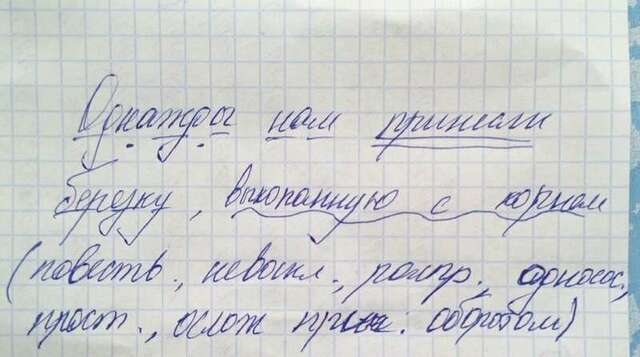 Однажды нам принесли
березку, выкопанную с корнем
(повест., невоскл., распр., односос.,
прост., ослож прич. оборотом)